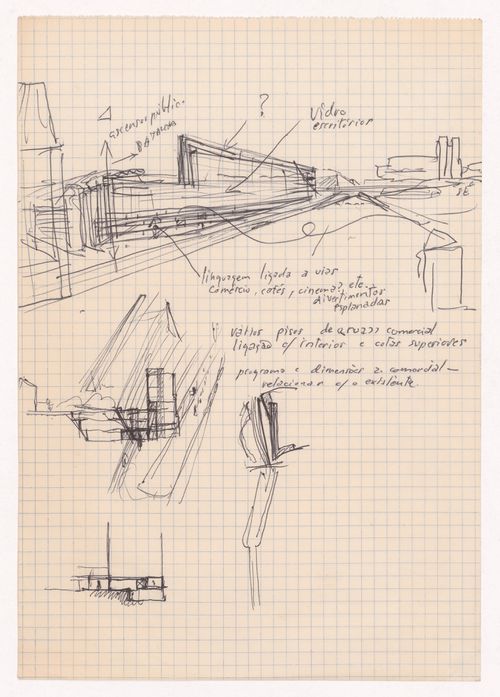 ?
vidro
escritórios
ascensor públic.
SÉ
linguagem ligada a vias
comércio, cafés, cinemas, etc.
divertimentos
esplanadas
vários pisos de comercial
ligação c/ interios e cotas superiores
programa e dimensões z. comercial —
relacionar c/ o existente